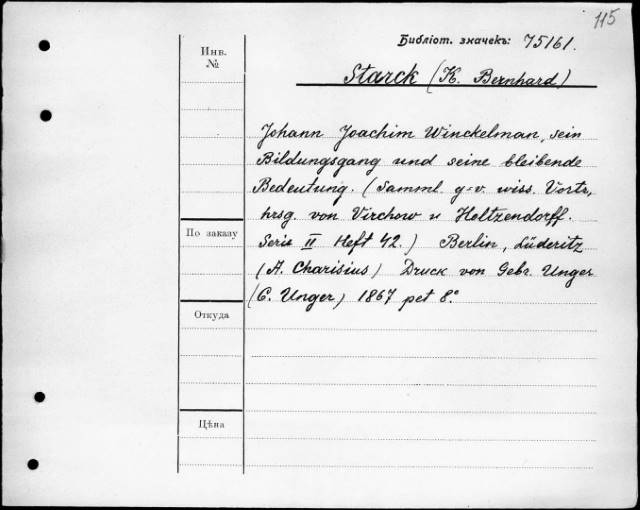 115
Библіот. значекъ: 75161.
Инв.
№
Starck (K. Bernhard)
Johann Joachim Winckelman, sein
Bildungsgang und seine bleibende
Bedeutung. (Samml. g=v. wiss. Vortr,
hrsg. von Virchow u Holtzendorff.
Serie II Heft 42.) Berlin, Lüderitz
(A. Charisius) Druck von Gebr. Unger
(C. Unger) 1867 pet 8.°
По заказу
Откуда
Цѣна